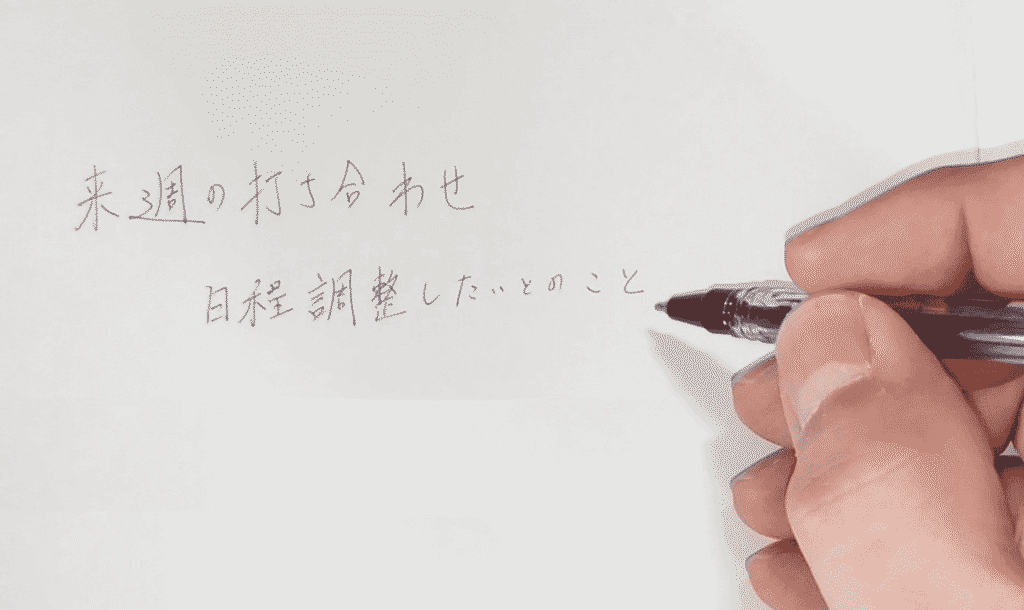 来週の打ち合わせ
日程調整したいとのこと